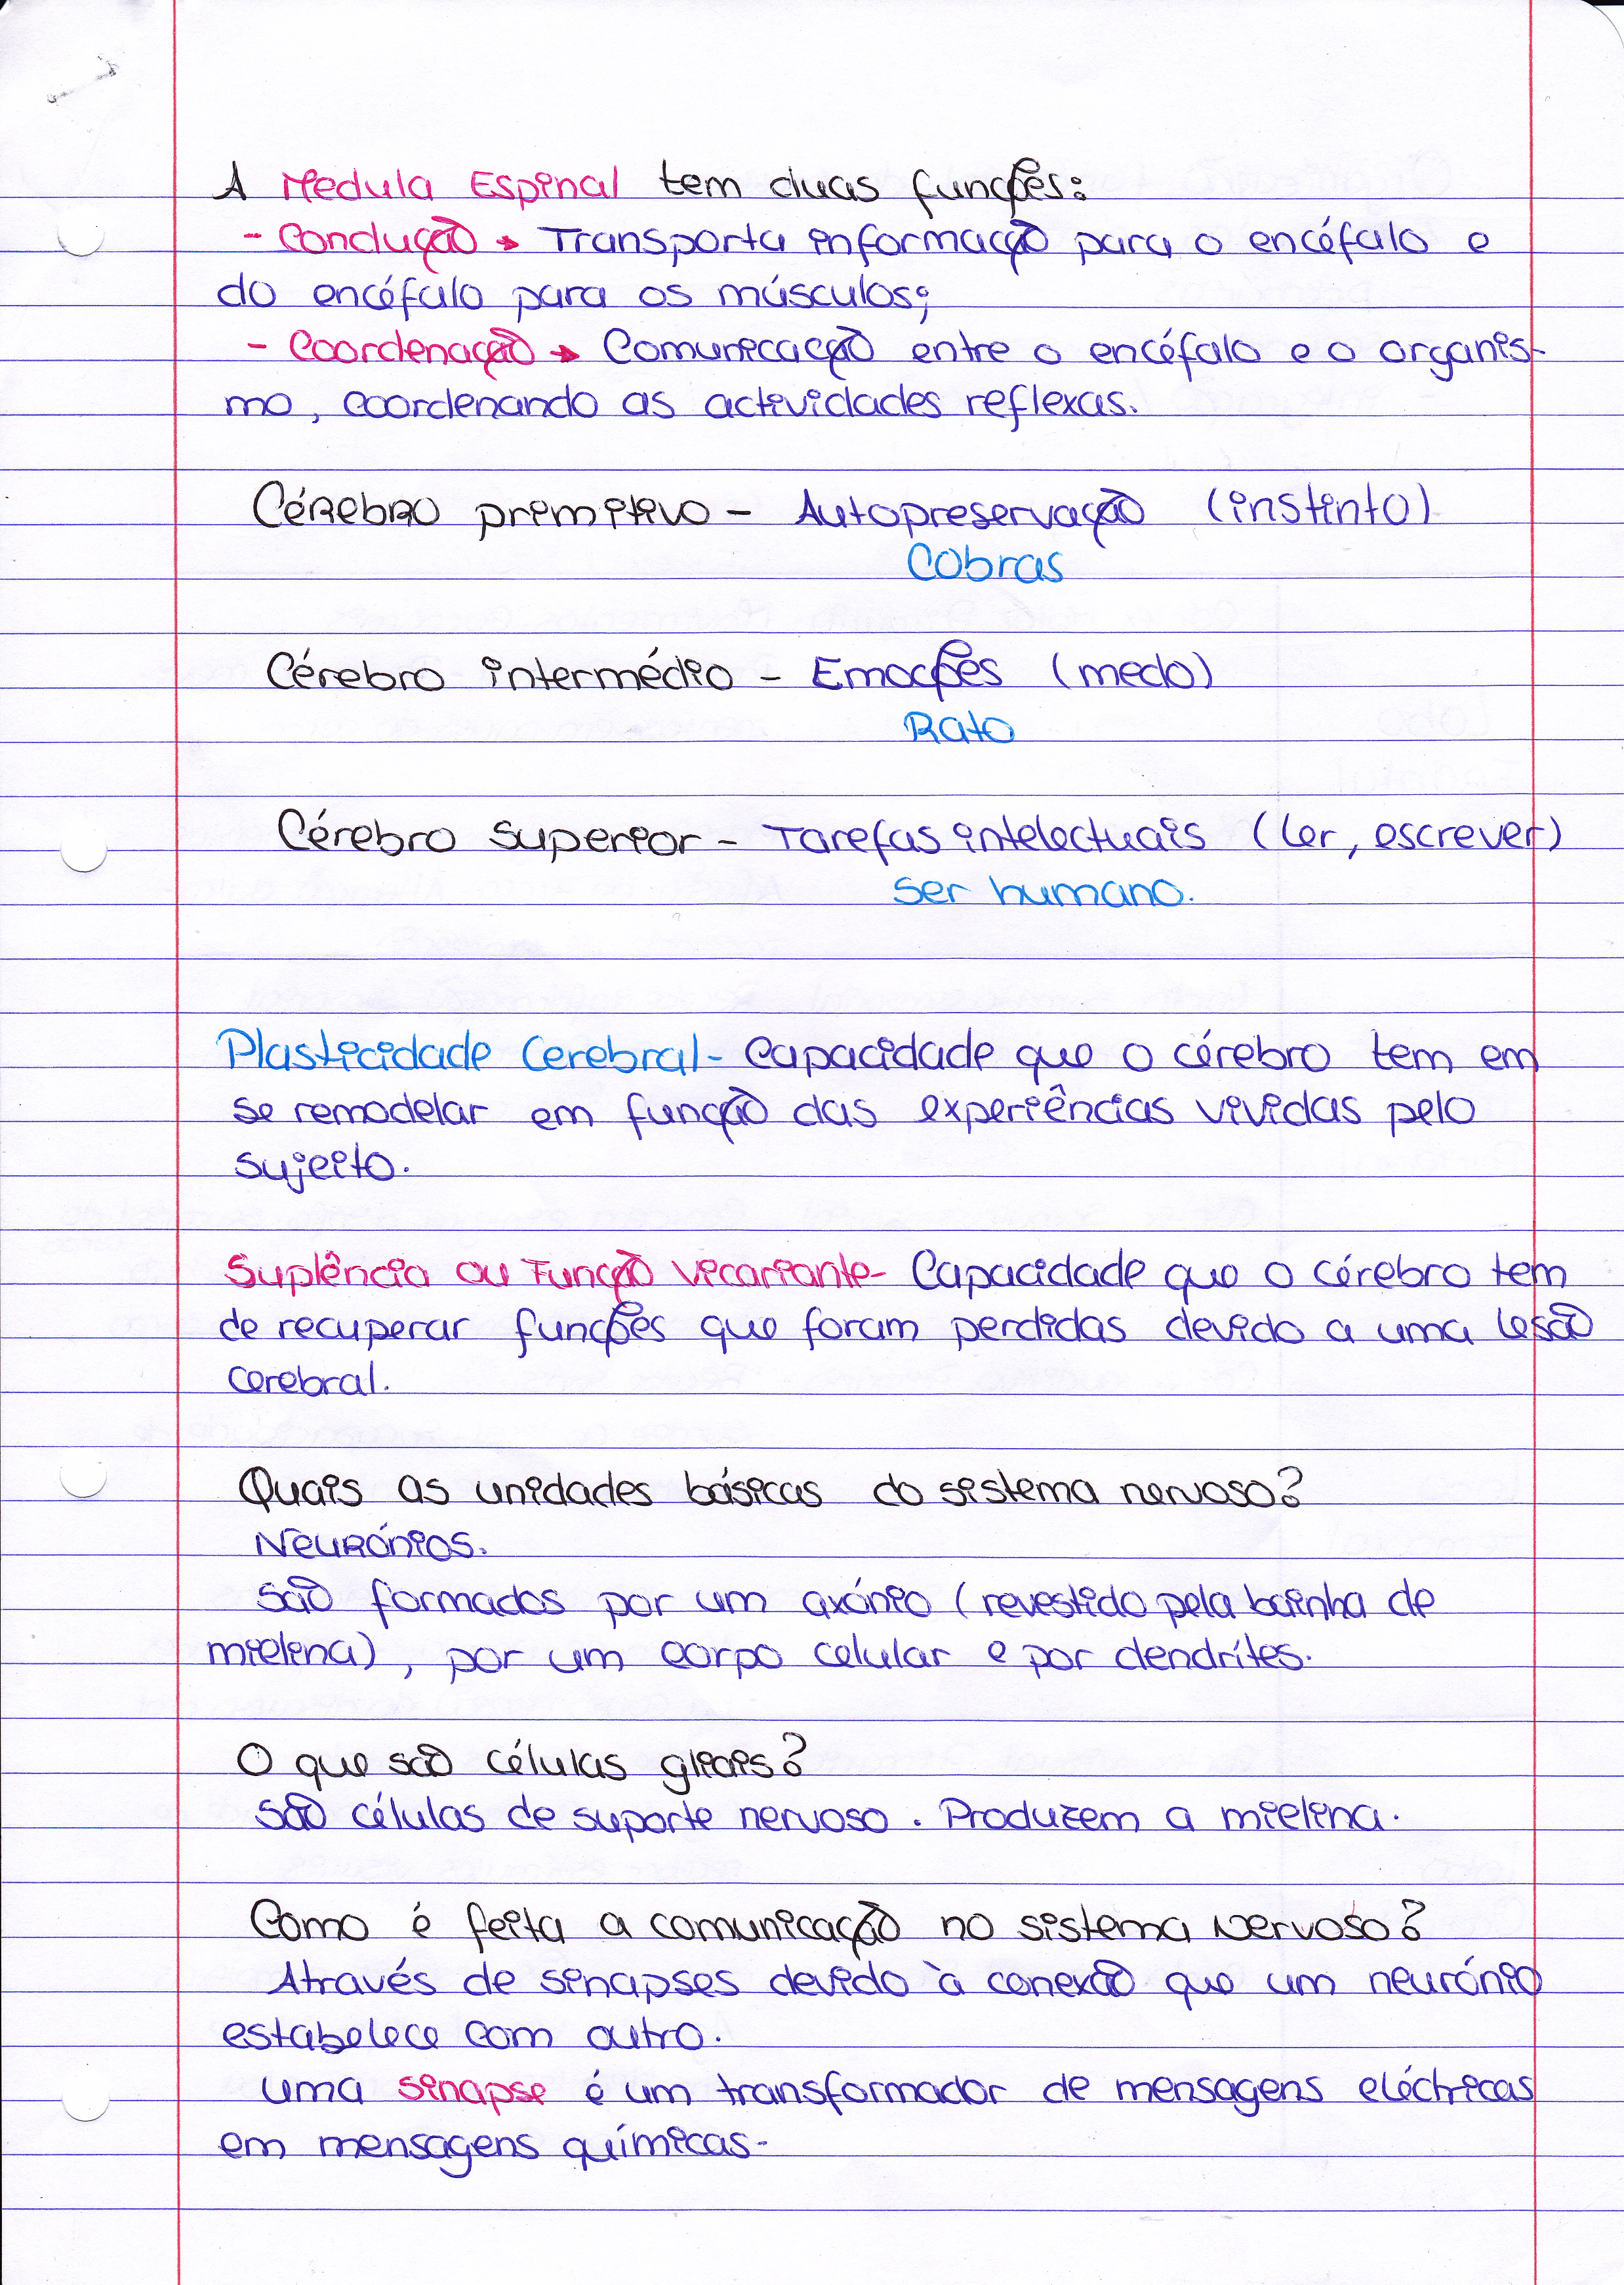 A Medula Espinal tem duas funções:
- Condução → Transporta informação para o encéfalo e
do encéfalo para os músculos;
- Coordenação → Comunicação entre o encéfalo e o organis-
mo, coordenando as actividades reflexas.
Cérebro primitivo - Autopreservação (instinto)
Cobras
Cérebro intermédio - Emoções (medo)
Rato
Cérebro superior - Tarefas intelectuais (ler, escrever)
ser humano.
Plasticidade Cerebral - Capacidade que o cérebro tem em
se remodelar em função das experiências vividas pelo
sujeito.
Suplência ou Função Vicariante - Capacidade que o cérebro tem
de recuperar funções que foram perdidas devido a uma lesão
cerebral.
Quais as unidades básicas do sistema nervoso?
Neurónios.
São formados por um axónio (revestido pela bainha de
mielina), por um corpo celular e por dendrítes.
O que são células gliais?
São células de suporte nervoso. Produzem a mielina.
Como é feita a comunicação no sistema nervoso?
Através de sinapses devido à conexão que um neurónio
estabelece com outro.
uma sinapse é um transformador de mensagens eléctricas
em mensagens químicas.